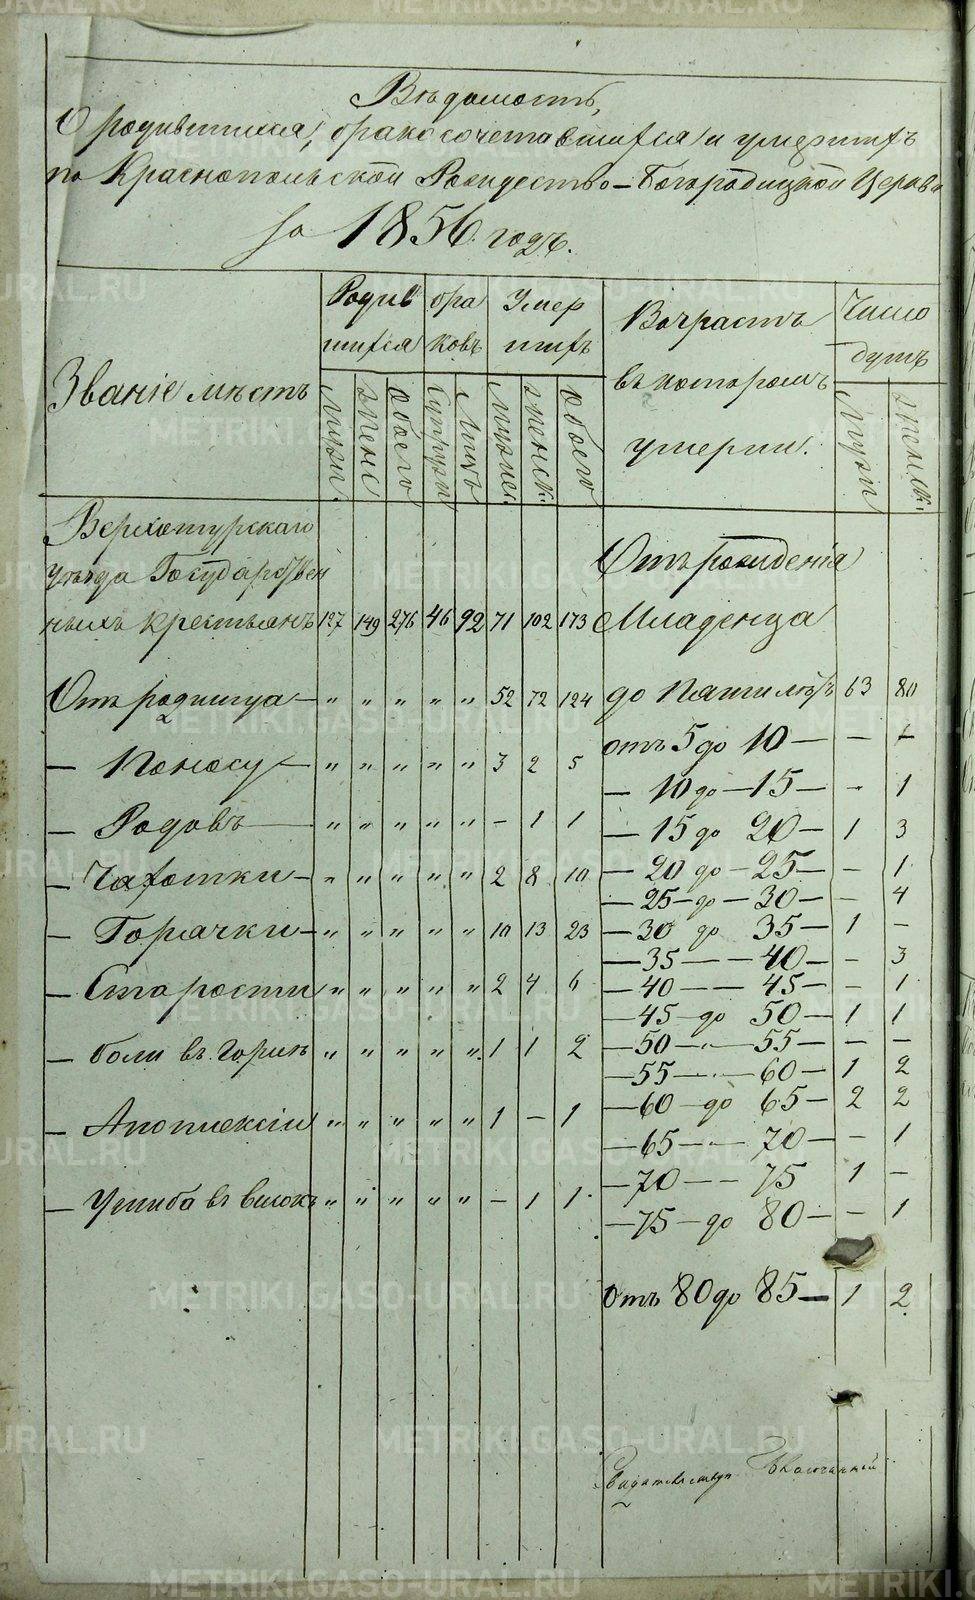 Ведомость,
О родившихся, бракосочетавшихся и умершихъ
по Краснопольской Рождество-Богородицкой Церкви
за 1856 годъ.
Званіе мѣстъ
Родив
шихся
бра
ковъ
Умер
шихъ
Возрастъ
въ которомъ
умерли.
Число
душъ
Муж.
Женс
Обоего
Супруж
Лицъ
Мужес.
Женск.
Обоего
Муж
Женск.
Верхотурскаго
уѣзда Государствен
ныхъ крестьянъ 127 149 276 46 92 71 102 173
Отъ рожденія
Младенца
Отъ родимца — „ „ „ „ „ 52 72 124
до Пяти лѣтъ 63 80
— Поносу — „ „ „ „ „ 3 2 5
отъ 5 до 10 — — —
— 10 до — 15 — — 1
— Родовъ „ „ „ „ „ — 1 1
— 15 до 20 — 1 3
— Чахотки — „ „ „ „ „ 2 8 10
— 20 до — 25 — — 1
— 25 — до — 30 — — 4
— Горячки — „ „ „ „ „ 10 13 23
— 30 до 35 — 1 —
— 35 — — 40 — — 3
— Старости „ „ „ „ „ 2 4 6
— 40 — — 45 — — 1
— 45 — до 50 — 1 1
— боли въ горлѣ „ „ „ „ „ 1 1 2
— 50 — „ — 55 — — —
— 55 — „ — 60 — 1 2
— Апоплексіи „ „ „ „ „ 1 — 1
— 60 — до 65 — 2 2
— 65 — — 70 — — 1
— Ушиба въ високъ „ „ „ „ „ — 1 1
— 70 — — 75 1 —
— 75 — до 80 — — 1
отъ 80 до 85 — 1 2
METRIKI.GASO-URAL.RU